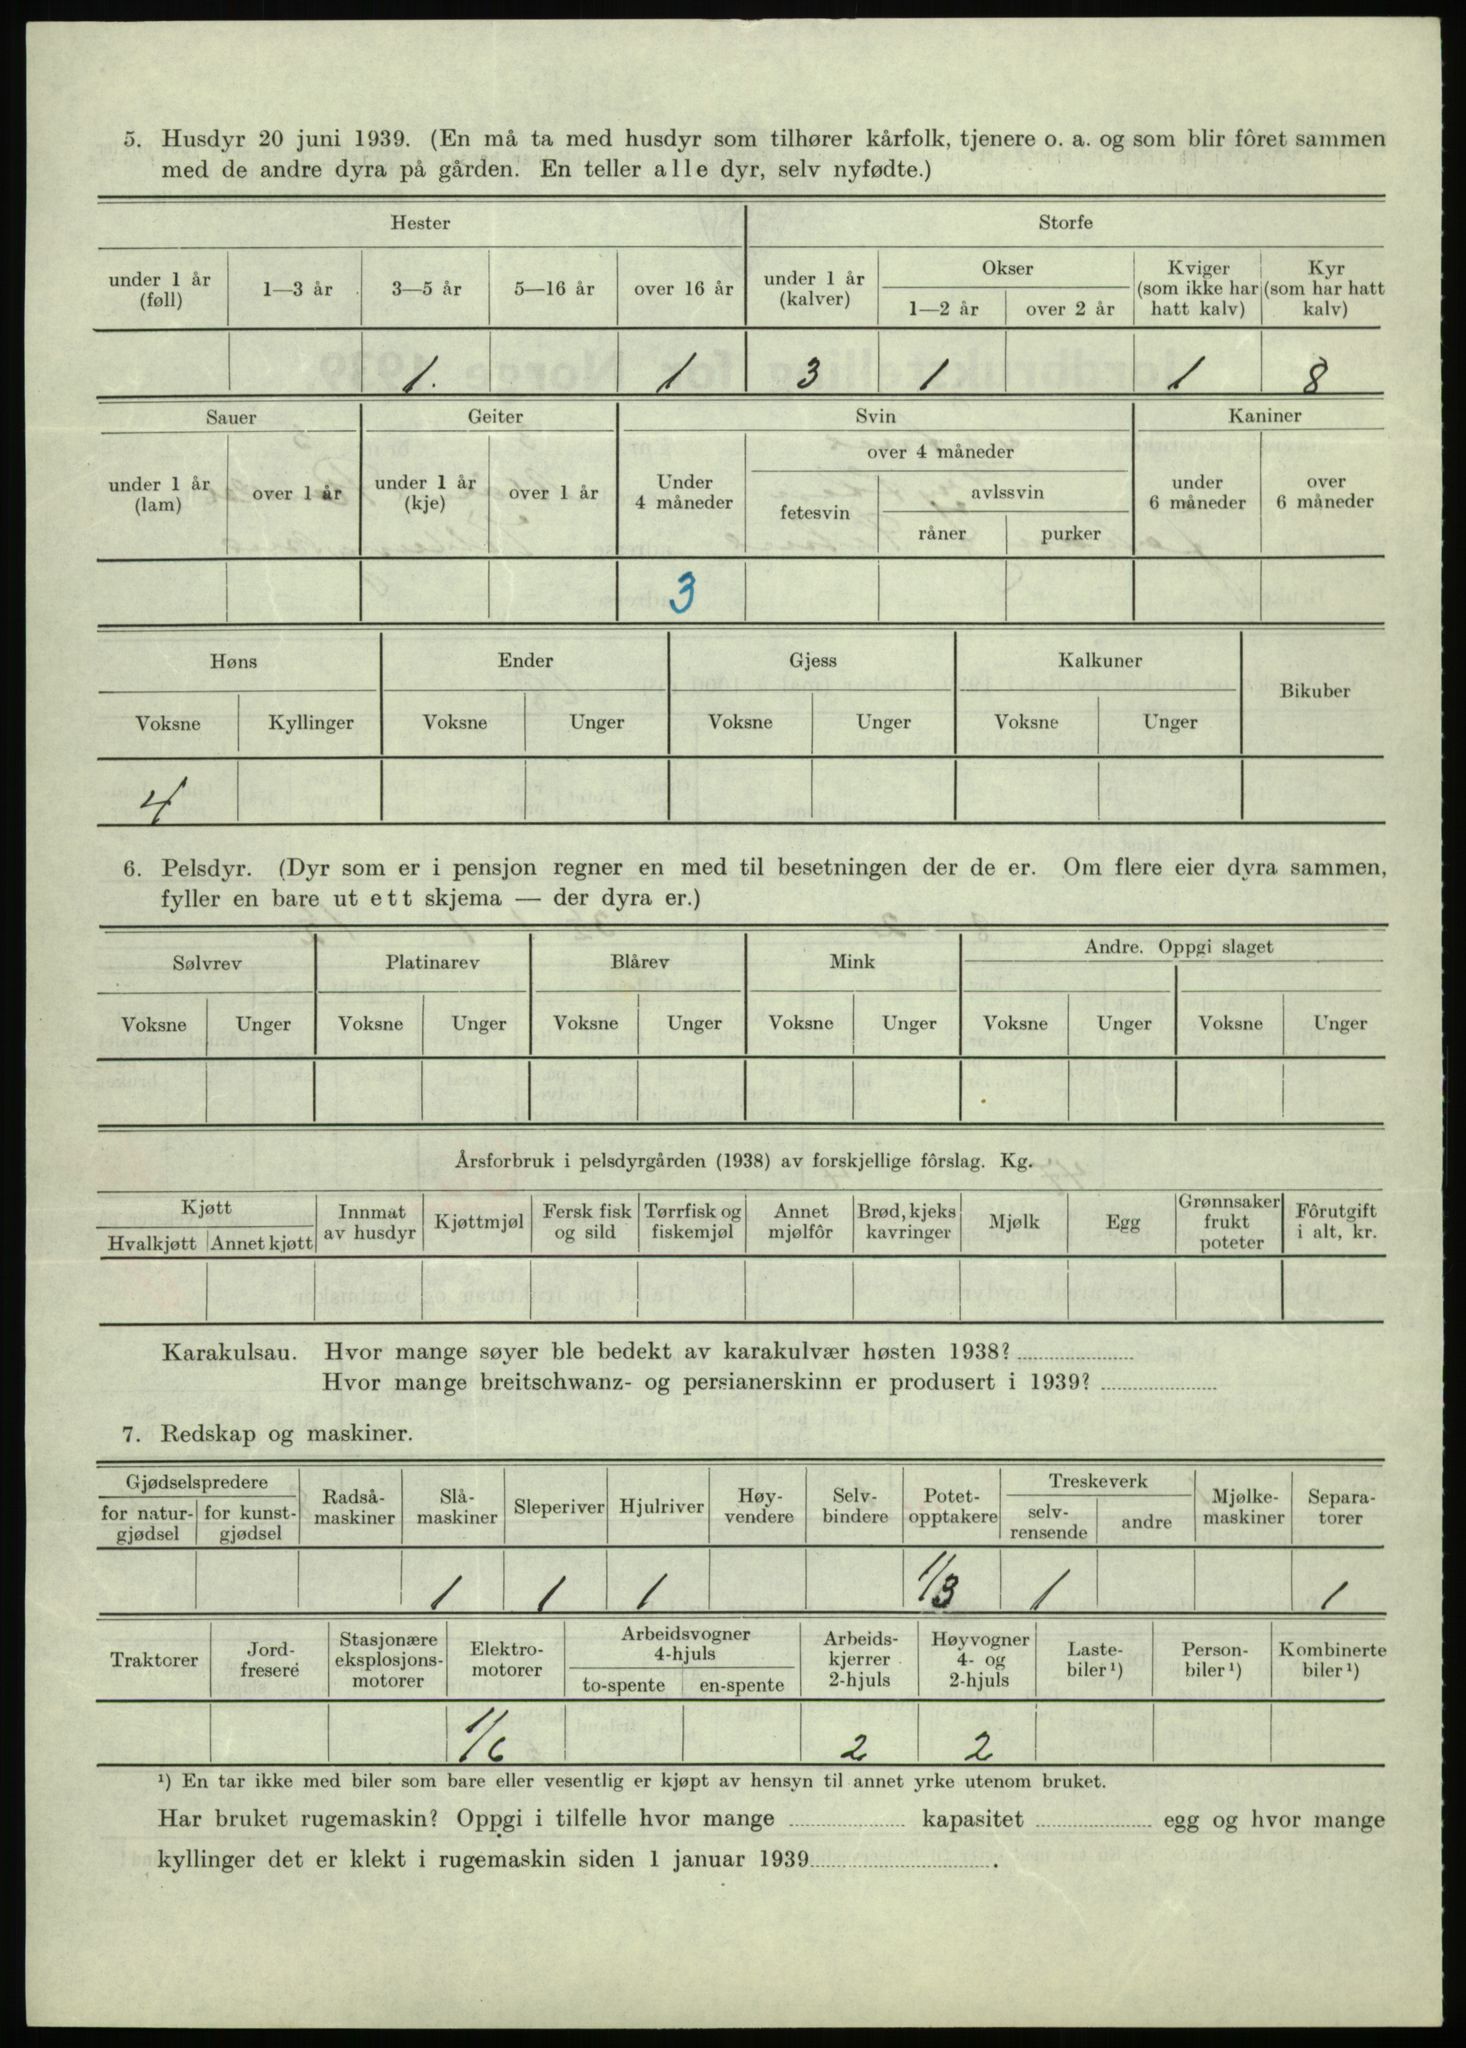 5. Husdyr 20 juni 1939. (En må ta med husdyr som tilhører kårfolk, tjenere o. a. og som blir fôret sammen
med de andre dyra på gården. En teller alle dyr, selv nyfødte.)
Hester Storfe
under 1 år (føll) 1—3 år 3—5 år 5—16 år over 16 år under 1 år (kalver) Okser 1—2 år over 2 år Kviger (som ikke har hatt kalv) Kyr (som har hatt kalv)
1. 1 3 1 1 8
Sauer Geiter Svin Kaniner
under 1 år (lam) over 1 år under 1 år (kje) over 1 år Under 4 måneder over 4 måneder fetesvin avlssvin råner purker under 6 måneder over 6 måneder
3
Høns Ender Gjess Kalkuner Bikuber
Voksne Kyllinger Voksne Unger Voksne Unger Voksne Unger
4
6. Pelsdyr. (Dyr som er i pensjon regner en med til besetningen der de er. Om flere eier dyra sammen,
fyller en bare ut ett skjema — der dyra er.)
Sølvrev Platinarev Blårev Mink Andre. Oppgi slaget
Voksne Unger Voksne Unger Voksne Unger Voksne Unger Voksne Unger Voksne Unger
Årsforbruk i pelsdyrgården (1938) av forskjellige fôrslag. Kg.
Kjøtt Hvalkjøtt Annet kjøtt Innmat av husdyr Kjøttmjøl Fersk fisk og sild Tørrfisk og fiskemjøl Annet mjølfôr Brød, kjeks kavringer Mjølk Egg Grønnsaker frukt poteter Fôrutgift i alt, kr.
Karakulsau. Hvor mange søyer ble bedekt av karakulvær høsten 1938?
Hvor mange breitschwanz- og persianerskinn er produsert i 1939?
7. Redskap og maskiner.
Gjødselspredere for natur-gjødsel for kunst-gjødsel Radså-maskiner Slå-maskiner Sleperiver Hjulriver Høy-vendere Selv-bindere Potet-opptakere Treskeverk selv-rensende andre Mjølke-maskiner Separa-torer
1 1 1 1/3 1 1
Traktorer Jord-fresere Stasjonære eksplosjons-motorer Elektro-motorer Arbeidsvogner 4-hjuls to-spente en-spente Arbeids-kjerrer 2-hjuls Høyvogner 4- og 2-hjuls Laste-biler ¹) Person-biler ¹) Kombinerte biler ¹)
1/6 2 2
¹) En tar ikke med biler som bare eller vesentlig er kjøpt av hensyn til annet yrke utenom bruket.
Har bruket rugemaskin? Oppgi i tilfelle hvor mange kapasitet egg og hvor mange
kyllinger det er klekt i rugemaskin siden 1 januar 1939 .